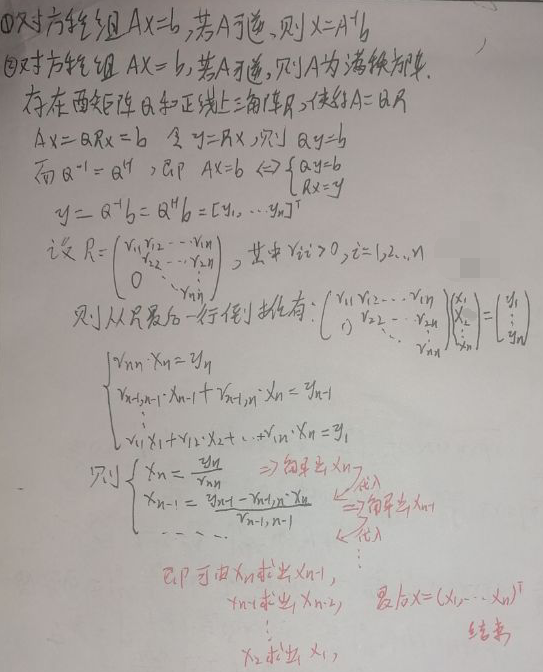 ①对方程组Ax=b,若A可逆,则x=A⁻¹b
②对方程组AX=b,若A可逆,则A为满秩方阵.
存在酉矩阵Q和正线上三角阵R,使得A=QR
Ax=QRx=b 令y=Rx,则Qy=b
而Q⁻¹=Qᴴ,即Ax=b⇔{Qy=b
Rx=y
y=Q⁻¹b=Qᴴb=[y₁,…yₙ]ᵀ
设R=(r₁₁ r₁₂ … r₁ₙ
r₂₂ … r₂ₙ
0 ⋱ ⋮
rₙₙ),其中rᵢᵢ>0,i=1,2…n
则从R最后一行倒推有:(r₁₁ r₁₂ … r₁ₙ
0 r₂₂ … r₂ₙ
⋱ ⋮
rₙₙ)(x₁
x₂
⋮
xₙ)=(y₁
⋮
yₙ)
{rₙₙ·xₙ=yₙ
rₙ₋₁,ₙ₋₁·xₙ₋₁+rₙ₋₁,ₙ·xₙ=yₙ₋₁
⋮
r₁₁x₁+r₁₂·x₂+…+r₁ₙ·xₙ=y₁
则{xₙ=yₙ/rₙₙ ⇒解出xₙ
代入
xₙ₋₁=(yₙ₋₁-rₙ₋₁,ₙ·xₙ)/rₙ₋₁,ₙ₋₁ ⇒解出xₙ₋₁
…… 代入
⋮
即可由xₙ求出xₙ₋₁,
xₙ₋₁求出xₙ₋₂, 最后x=(x₁,…xₙ)ᵀ
⋮ 结束
x₂求出x₁,